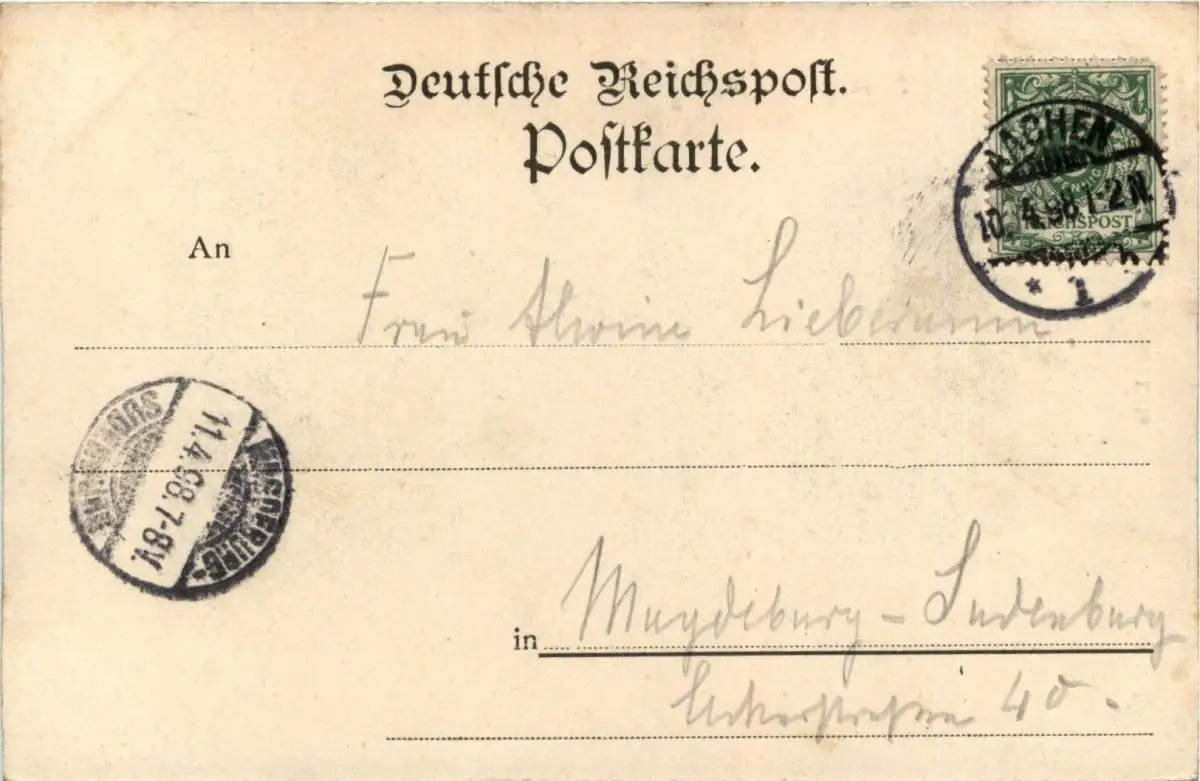 Deutsche Reichspost.
Postkarte.
AACHEN
10. 4. 98 1-2 N.
REICHSPOST
* 1
An
Frau Alwine Liebemann.
SUDENBURG
11.4.98.7-8V.
MAGDEBURG-
in Magdeburg - Sudenburg
40.